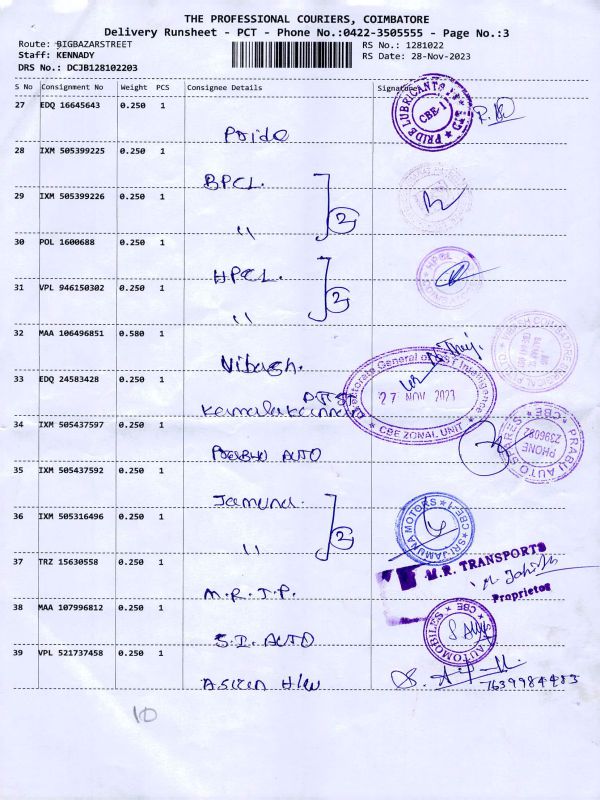 THE PROFESSIONAL COURIERS, COIMBATORE
Delivery Runsheet - PCT - Phone No.:0422-3505555 - Page No.:3
Route: BIGBAZARSTREET RS No.: 1281022
Staff: KENNADY RS Date: 28-Nov-2023
DRS No.: DCJB128102203
S No Consignment No Weight PCS Consignee Details Signature
27 EDQ 16645643 0.250 1
Pride
PRIDE LUBRICANTS CBE-1
28 IXM 505399225 0.250 1
BPCL.
29 IXM 505399226 0.250 1
" 2
30 POL 1600688 0.250 1
HPCL.
31 VPL 946150302 0.250 1
" 2
32 MAA 106496851 0.580 1
Vibagh.
33 EDQ 24583428 0.250 1
Directorate General of GST Intelligence
27 NOV 2023
CBE ZONAL UNIT
34 IXM 505437597 0.250 1
Prabhu AUTO
PRABU AUTO STORES CBE
PHONE
35 IXM 505437592 0.250 1
Jamuna.
SRI JAMUNA MOTORS CBE-1
36 IXM 505316496 0.250 1
" 2
37 TRZ 15630558 0.250 1
M.R.T.P.
M.R. TRANSPORTS
Proprietor
38 MAA 107996812 0.250 1
S.I. AUTO
AUTOMOBILES CBE
39 VPL 521737458 0.250 1
7639984483
10